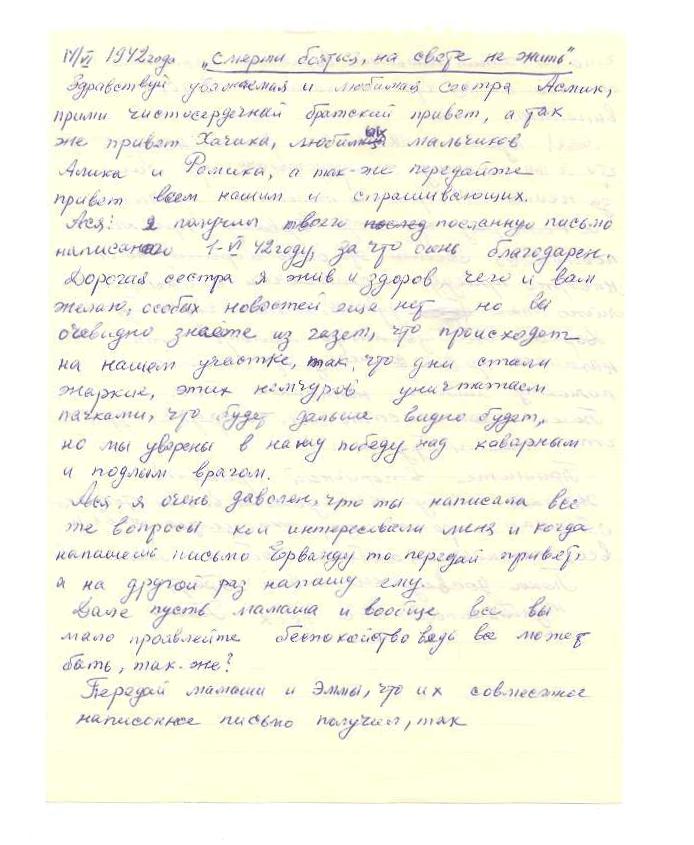 14/VI 1942 года „Смерти бояться, на свете не жить".
Здравствуй уважаемая и любимая сестра Асмик,
прими чистосердечный братский привет, а так
же привет Хачика, любимых мальчиков
Алика и Ромика, а так-же передайте
привет всем нашим и спрашивающих.
Ася: я получил твоего послед посланную письмо
написаного 1-VI 42 году, за что очень благодарен.
Дорогая сестра я жив и здоров чего и вам
желаю, особых новостей еще нет но вы
очевидно знаете из газет, что происходет
на нашем участке, так, что дни стали
жаркие, этих немчуров уничтжаем
пачками, что будет дальше видно будет,
но мы уверены в нашу победу над каварным
и подлым врагом.
Ася: я очень даволен, что ты написала все
же вопросы кои интересовали меня и когда
напишешь письмо Ерванду то передай привет,
а на другой раз напишу ему.
Дале пусть мамаша и вообще все вы
мало проявлейте беспокойство ведь все может
быть, так-же?
Передай мамаши и Эммы, что их совместное
написонное письмо получил, так